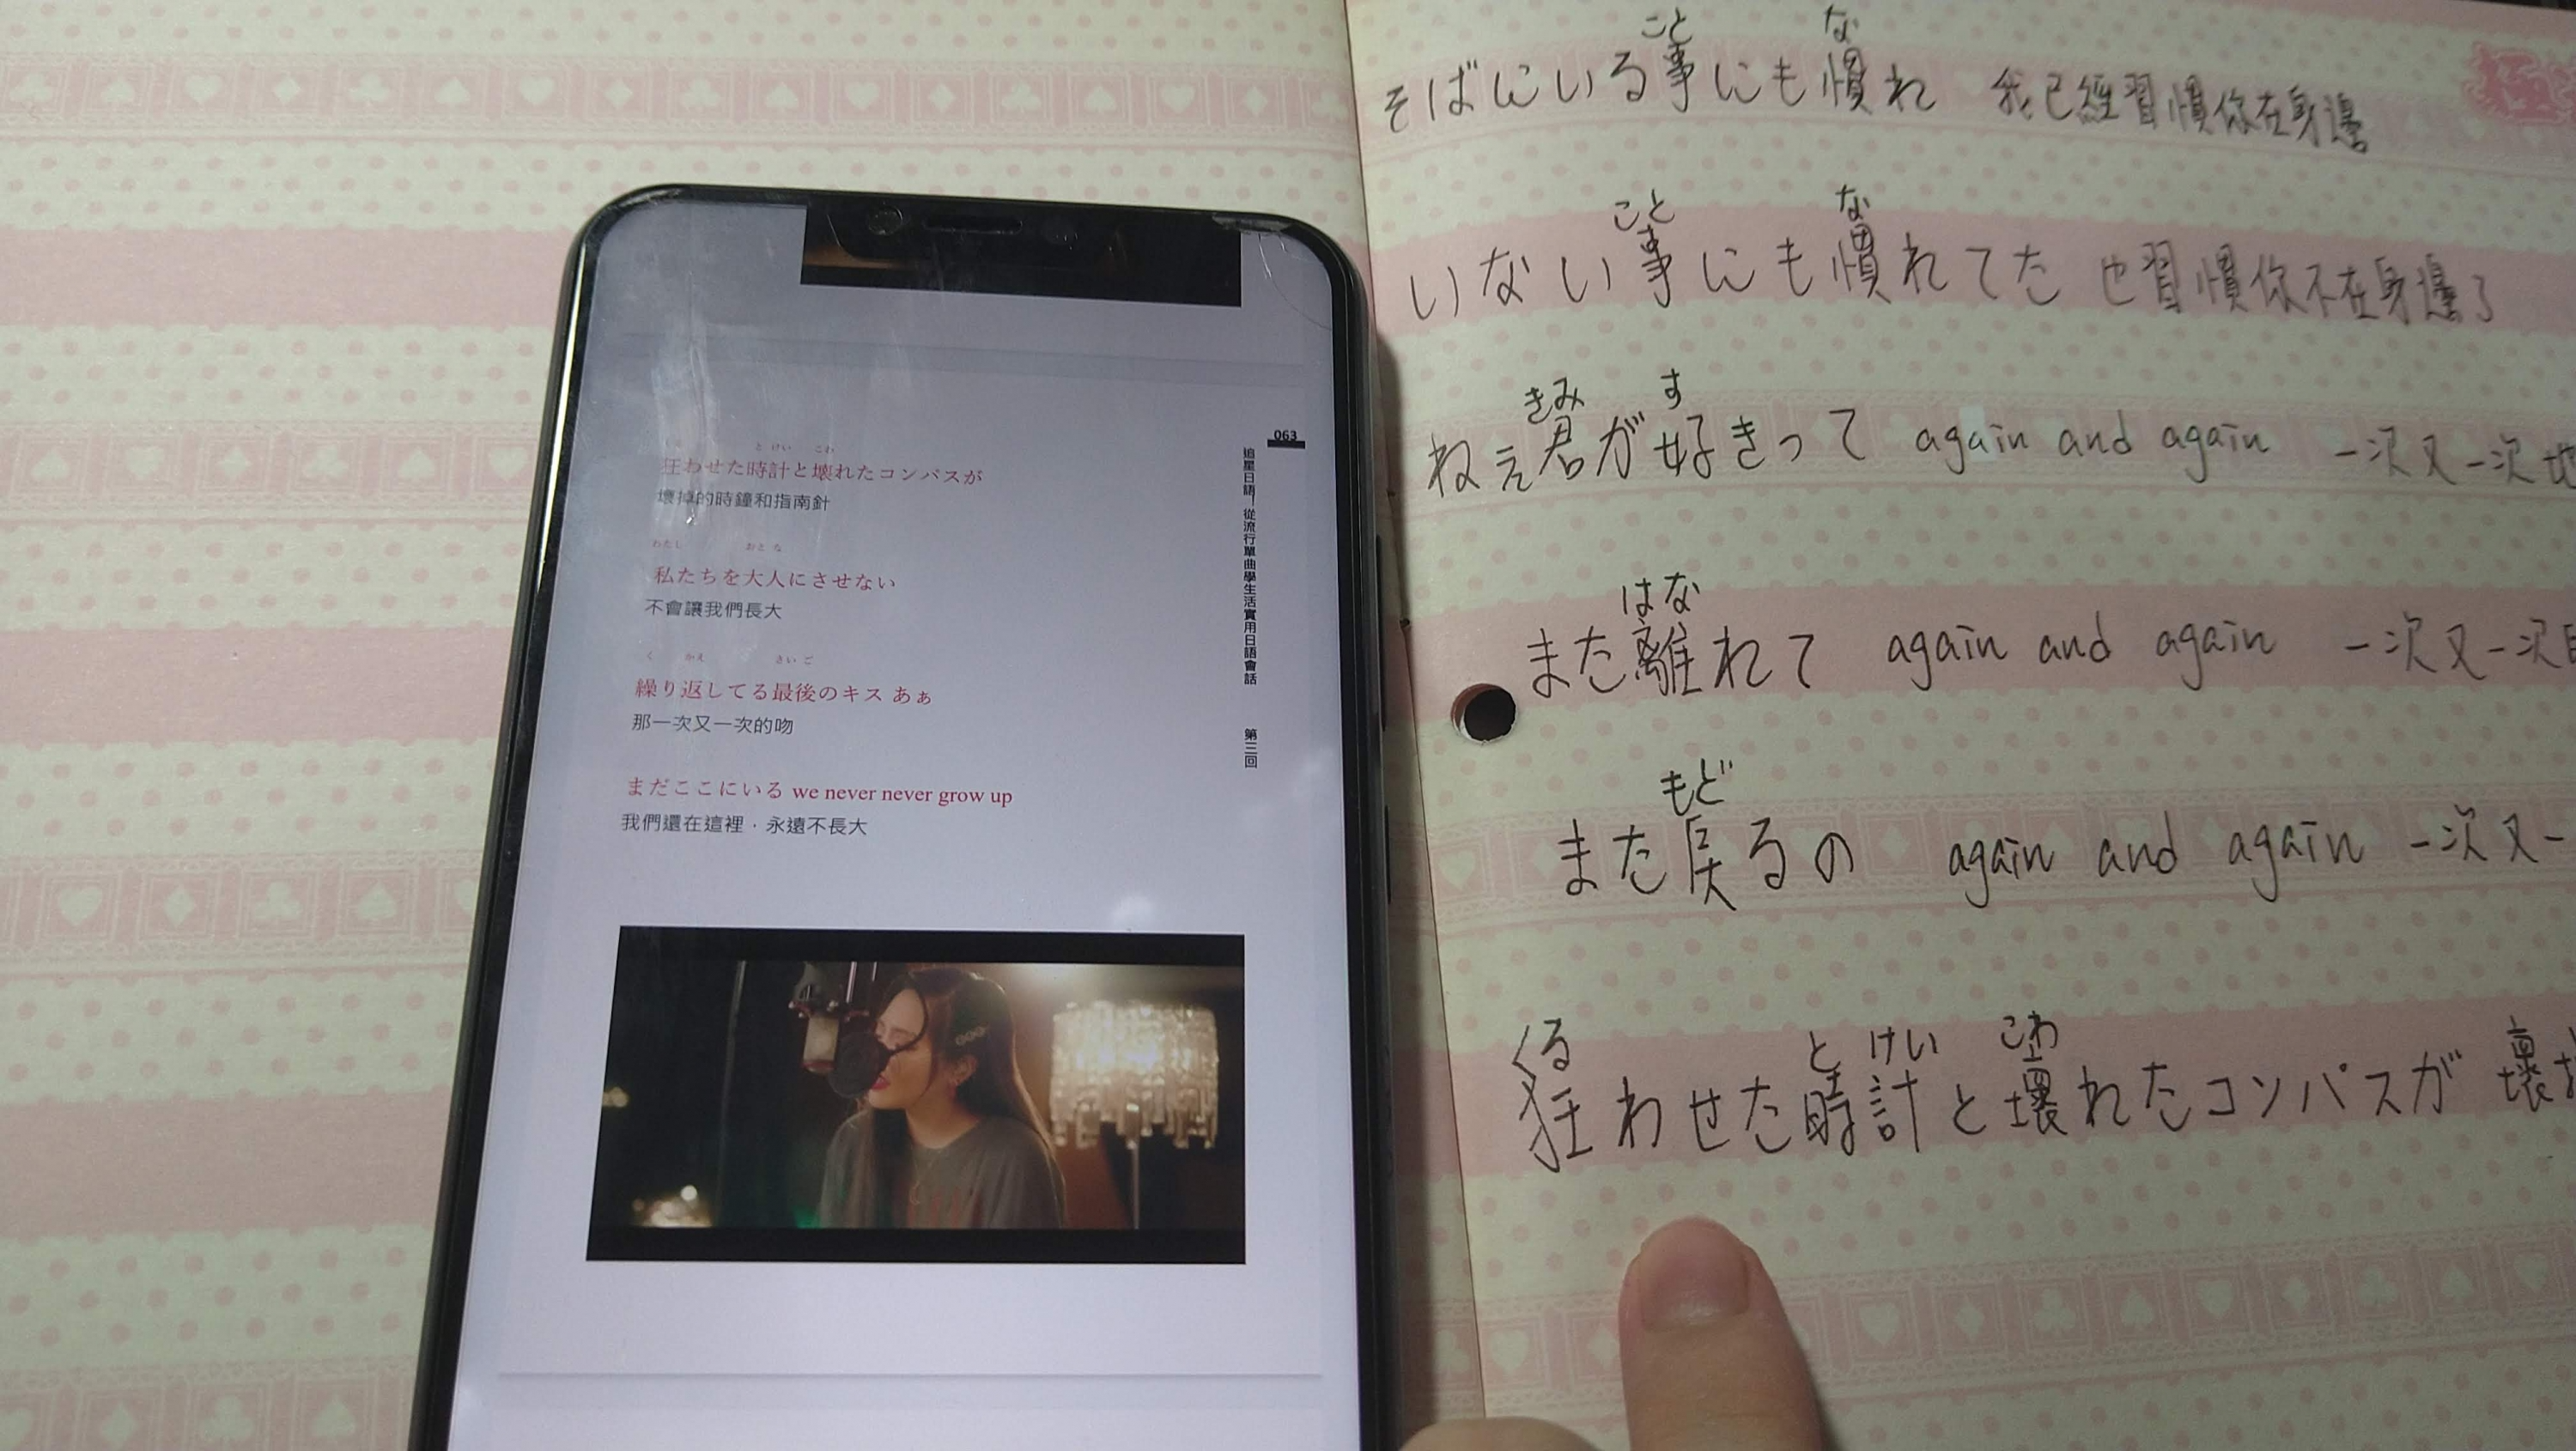 063
追星日語—從流行單曲學生活實用日語會話 第三回
と けい こわ
狂わせた時計と壊れたコンパスが
壞掉的時鐘和指南針
わたし おと な
私たちを大人にさせない
不會讓我們長大
く かえ さい ご
繰り返してる最後のキス あぁ
那一次又一次的吻
まだここにいる we never never grow up
我們還在這裡，永遠不長大
こと な
そばにいる事にも慣れ 我已經習慣你在身邊
こと な
いない事にも慣れてた 也習慣你不在身邊了
きみ す
ねぇ君が好きって again and again 一次又一次地
はな
また離れて again and again 一次又一次
もど
また戻るの again and again 一次又一
くる と けい こわ
狂わせた時計と壊れたコンパスが 壞